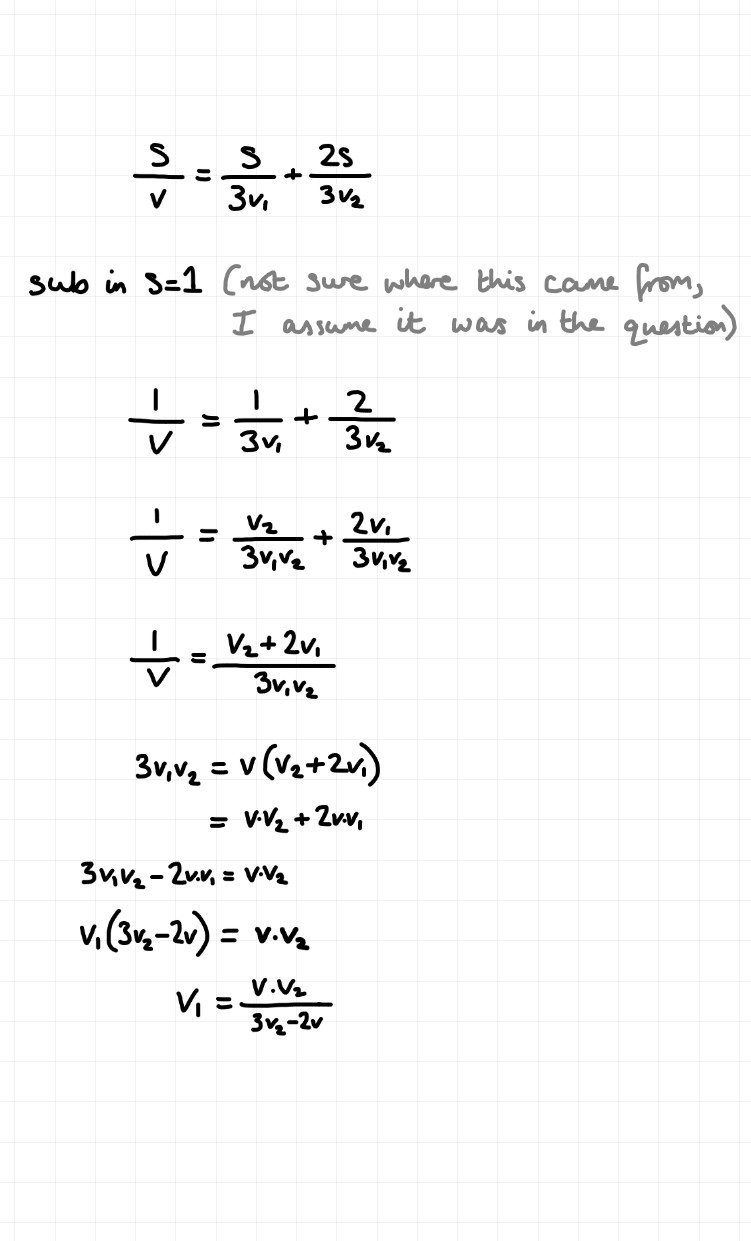 s/v = s/3v₁ + 2s/3v₂
sub in s=1 (not sure where this came from,
I assume it was in the question)
1/v = 1/3v₁ + 2/3v₂
1/v = v₂/3v₁v₂ + 2v₁/3v₁v₂
1/v = v₂+2v₁/3v₁v₂
3v₁v₂ = v(v₂+2v₁)
= v·v₂ + 2v·v₁
3v₁v₂ - 2v·v₁ = v·v₂
v₁(3v₂-2v) = v·v₂
v₁ = v·v₂/3v₂-2v